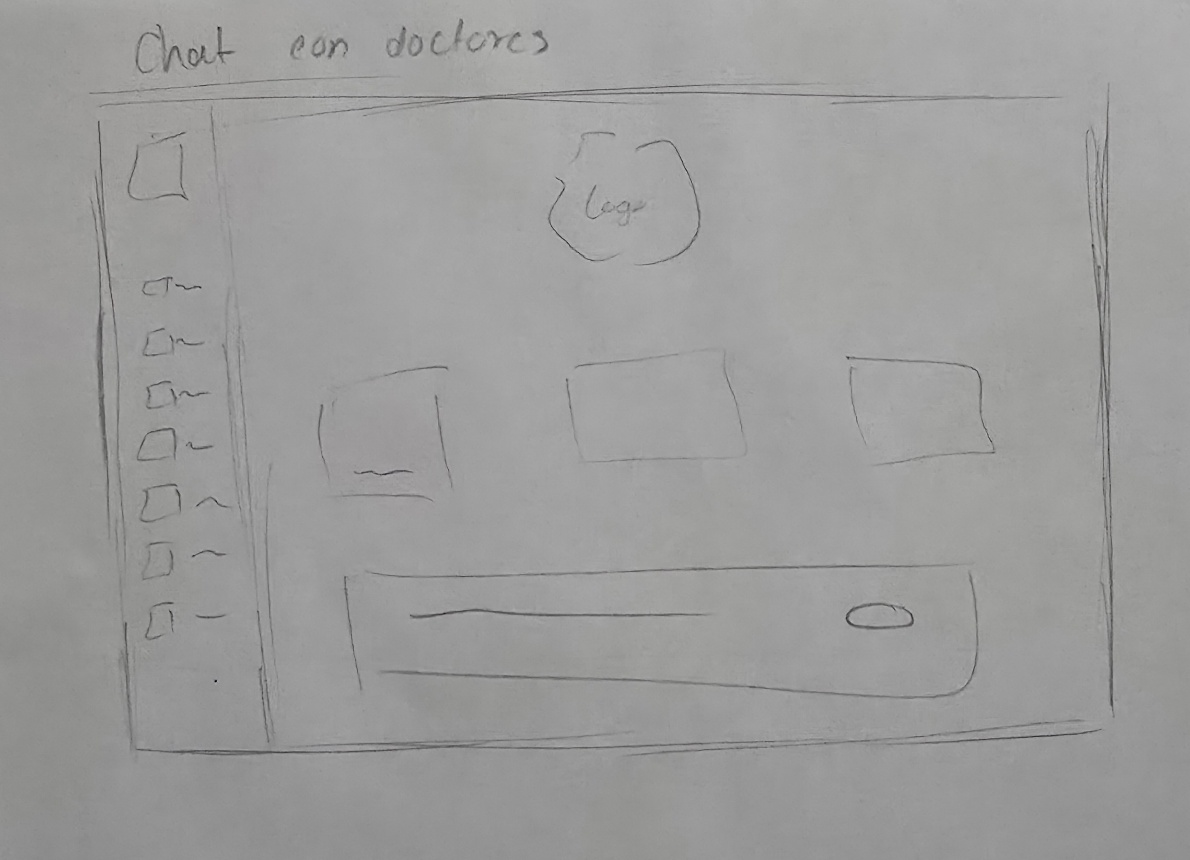 Chat con doctores
Logo